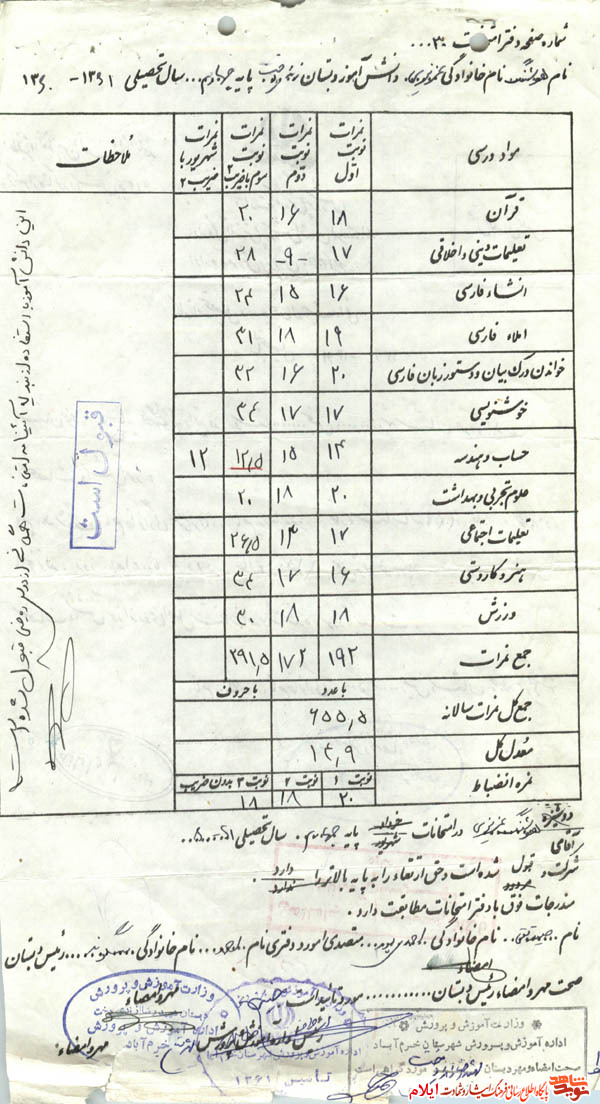 شماره صفحه دفتر امتحانات ۳۰...
نام هوشنگ نام خانوادگی عزیزی دانش آموز دبستان پایه چهارم... سال تحصیلی ۱۳۶۱-۱۳۶۰
مواد درسی نمرات نوبت اول نمرات نوبت دوم نمرات نوبت سوم با ضریب ۲ نمرات شهریور با ضریب ۲ ملاحظات
قرآن ۱۸ ۱۶ ۲۰
تعلیمات دینی و اخلاقی ۱۷ -۹- ۲۸
انشاء فارسی ۱۶ ۱۵ ۲۴
املاء فارسی ۱۹ ۱۸ ۳۱
خواندن درک بیان و دستور زبان فارسی ۲۰ ۱۶ ۳۲
خوشنویسی ۱۷ ۱۷ ۳۴
حساب و هندسه ۱۴ ۱۵ ۱۲/۵ ۱۲
علوم تجربی و بهداشت ۲۰ ۱۸ ۲۰
تعلیمات اجتماعی ۱۷ ۱۳ ۲۶/۵
هنر و کاردستی ۱۶ ۱۷ ۳۴
ورزش ۱۸ ۱۸ ۳۰
جمع نمرات ۱۹۲ ۱۷۲ ۲۹۱,۵
با عدد با حروف
جمع کل نمرات سالانه ۶۵۵,۵
معدل کل ۱۴,۹
نوبت ۱ نوبت ۲ نوبت ۳ بدون ضریب
نمره انضباط ۲۰ ۱۸ ۱۸
این دانش آموز با استفاده از
قبول شده است
قبول است
دوشیزه
آقای هوشنگ عزیزی در امتحانات خرداد شهریور پایه چهارم. سال تحصیلی
شرکت و قبول مردود شده است و حق ارتقاء را به پایه بالاتر را دارد ندارد.
مندرجات فوق با دفتر امتحانات مطابقت دارد.
نام نام خانوادگی متصدی امور دفتری نام نام خانوادگی رئیس دبستان
امضاء
صحت مهر و امضاء رئیس دبستان............ مورد تأیید است
مهر و امضاء
وزارت آموزش و پرورش
مهر و امضاء
تأسیس ۱۳۶۱
وزارت آموزش و پرورش
اداره آموزش و پرورش شهرستان خرم آباد
صحت امضاء و مهر دبستان مورد گواهی است
نوید شاهد
پایگاه اطلاع رسانی فرهنگ ایثار و شهادت ایلام